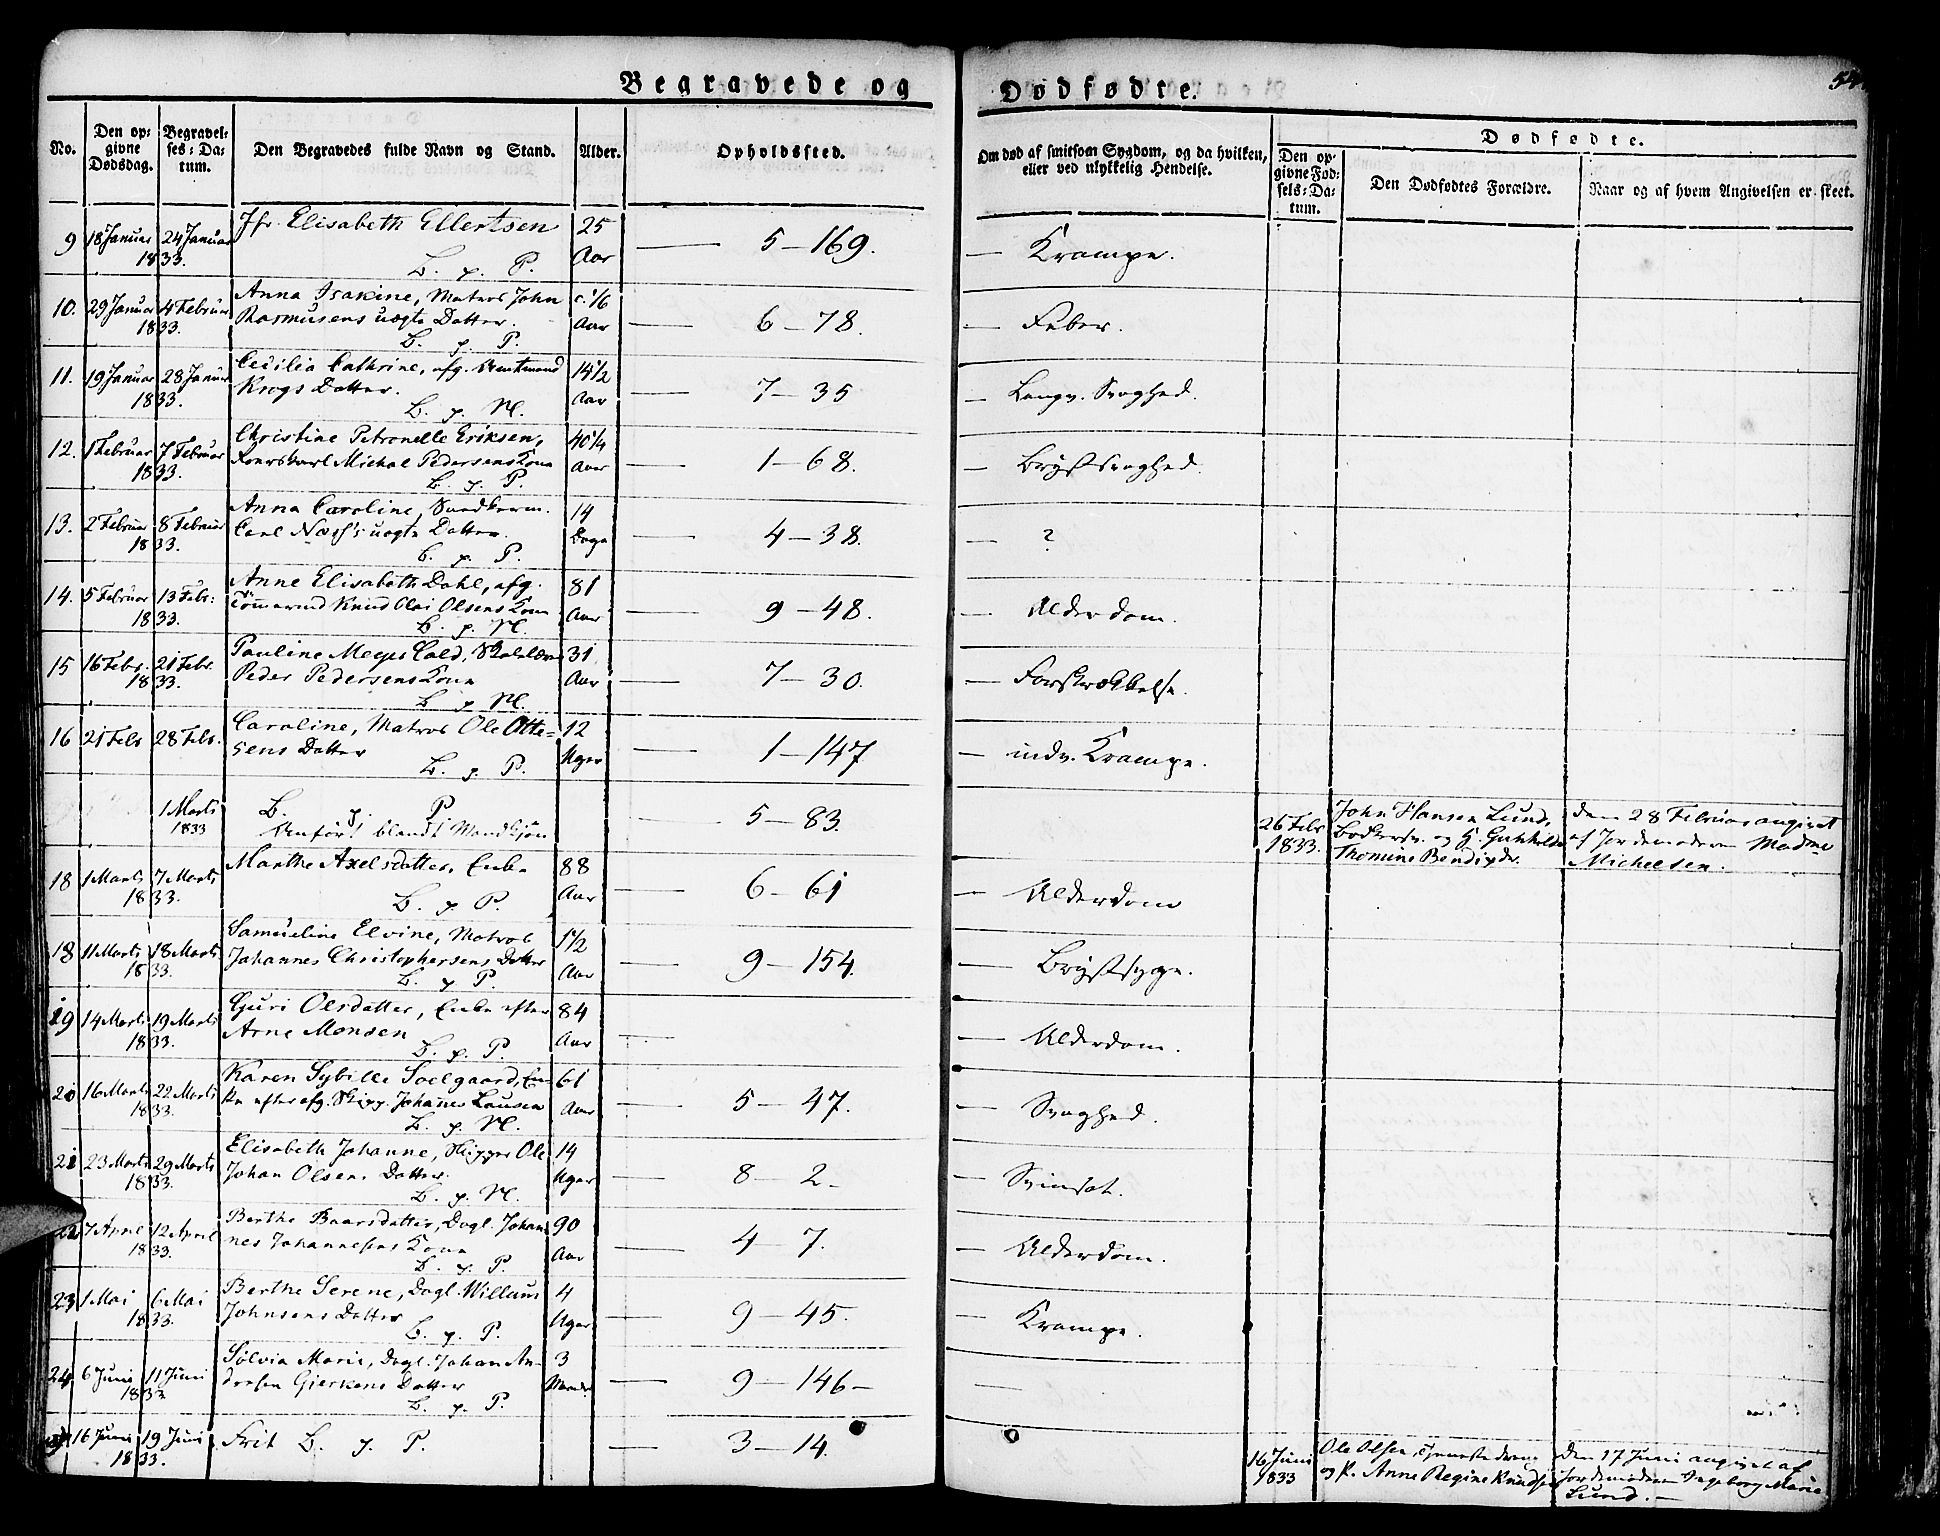 Begravede og Dødfødte.
54
No. Den opgivne Dødsdag. Begravelses-Datum. Den Begravedes fulde Navn og Stand. Alder. Opholdssted. Om død af smitsom Sygdom, og da hvilken, eller ved ulykkelig Hendelse.
Dødfødte.
Den opgivne Fødsels-Datum. Den Dødfødtes Forældre. Naar og af hvem Angivelsen er skeet.
9 18 Januar 24 Januar Jfr. Elisabeth Ellertsen 25
1833. B. p. P. Aar — 5 — 169. — Krampe.
10. 29 Januar 4 Februar Anna Isakine, Matros John c. 1/6
1833. Rasmusens uægte Datter. Aar — 6 — 78. — Feber.
B. p. P.
11. 19 Januar 28 Januar Cecilia Cathrine, afg. 14 1/2
1833. Krogs Datter. Aar — 7 — 35 — Langv. Svaghed.
B. p. N.
12. 1 Februar 7 Februar Christine Petronelle Eriksen, 40 1/4
1833. Michal Pedersens Kone Aar — 1 — 68. — Brystsvaghed.
B. p. P.
13. 2 Februar 8 Februar Anna Caroline, 14
1833. Carl Næss's uægte Datter. Dage — 4 — 38. — ?
B. p. P.
14. 5 Februar 13 Febr: Anne Elisabeth Dahl, afg. 81
1833. Tømmermd Knud Olai Olsens Kone Aar — 9 — 48. — Alderdom.
B. p. N.
15 16 Febr. 21 Febr. Pauline Meyer Cold, Skolelærer 31
1833. Peder Pedersens Kone Aar — 7 — 30. — Forskrækkelse.
B. p. N.
16 21 Febr 28 Febr. Caroline, Matros Ole Otte= 12
sens Datter Uger — 1 — 147 — indv. Krampe.
B. p. P.
1 Marts B. p. P — 5 — 83.
1833 Anført blandt Mandkjøn
26 Febr 1833. John Hansen Lund,
Bødkersv. og H. Gunhilde
Thomine Bendixdr.
den 28 Februar angivet
af Jordemoderen Madme
Micheelsen.
18 1 Marts 7 Marts Marthe Axelsdatter, Enke 88
1833. B. p. P. Aar — 6 — 61 — Alderdom
18 11 Marts 18 Marts Samueline Elvine, Matros 1 1/2
1833. Johannes Christophersens Datter Aar — 9 — 154. — Brystsyge.
B. p. P.
19 14 Marts 19 Marts Guri Olsdatter, Enke efter 84
1833. Arne Monsen Aar — Alderdom.
B. p. P.
20 16 Marts 22 Marts Karen Sybille Soelgaard, En- 61
1833. ke efter afg. Skipp. Johannes Lausen Aar — 5 — 47. — Svaghed.
B. p. N.
21 23 Marts 29 Marts Elisabeth Johanne, Skipper Ole 14
1833. Johan Olsens Datter. Uger — 8 — 2. — Svinsot.
B. p. N.
22 7 April 12 April Berthe Baarsdatter, Dagl. Johan 90
1833. nes Johannesens Kone Aar — 4 — 7. — Alderdom.
B. p. P.
23 1 Mai 6 Mai Berthe Serene, Dagl. Willaus 4
1833. Johnsens Datter Uger — 9 — 45. — Krampe.
B. p. P.
24 6 Juni 11 Juni Sølvia Marie, Dagl. Johan An- 3
1833 dresen Gjerkens Datter — 9 — 146 — —
B. p. P.
16 Juni 19 Juni Frit B. p. P. — 3 — 14.
1833.
16 Juni 1833 Ole Olsen, Tjenestedreng
og P. Anne Regine Knudsen
den 17 Juni angivet af
Jordemoderen Ingeborg Marie
Lund. —